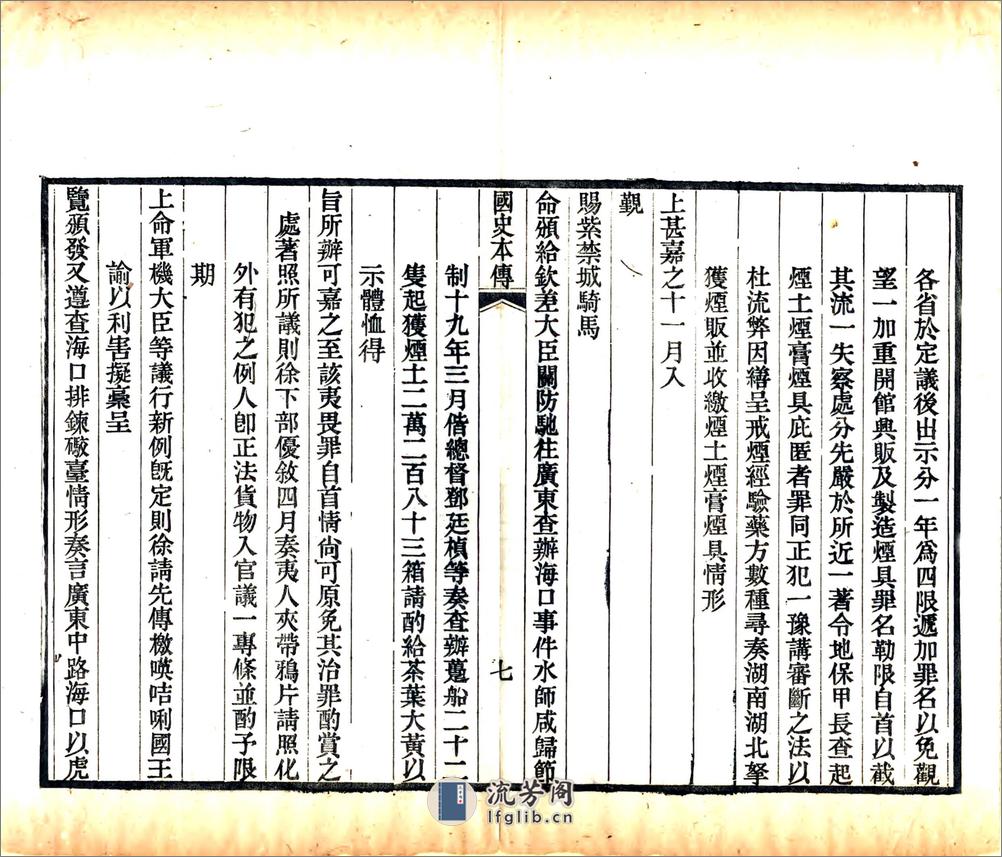 各省於定議後出示分一年爲四限遞加罪名以免觀
望一加重開館興販及製造煙具罪名勒限自首以截
其流一失察處分先嚴於所近一著令地保甲長查起
煙土煙膏煙具庇匿者罪同正犯一豫講審斷之法以
杜流弊因繕呈戒煙經驗藥方數種尋奏湖南湖北拏
獲煙販並收繳煙土煙膏煙具情形
上甚嘉之十一月入
覲
賜紫禁城騎馬
命頒給欽差大臣關防馳往廣東查辦海口事件水師咸歸節
國史本傳
七
制十九年三月偕總督鄧廷楨等奏查辦躉船二十二
隻起獲煙土二萬二百八十三箱請酌給茶葉大黃以
示體恤得
旨所辦可嘉之至該夷畏罪自首情尙可原免其治罪酌賞之
處著照所議則徐下部優敘四月奏夷人夾帶鴉片請照化
外有犯之例人卽正法貨物入官議一專條並酌予限
期
上命軍機大臣等議行新例旣定則徐請先傳檄㗸咭唎國王
諭以利害擬稾呈
覽頒發又遵查海口排鍊礮臺情形奏言廣東中路海口以虎
流芳阁
lfglib.cn